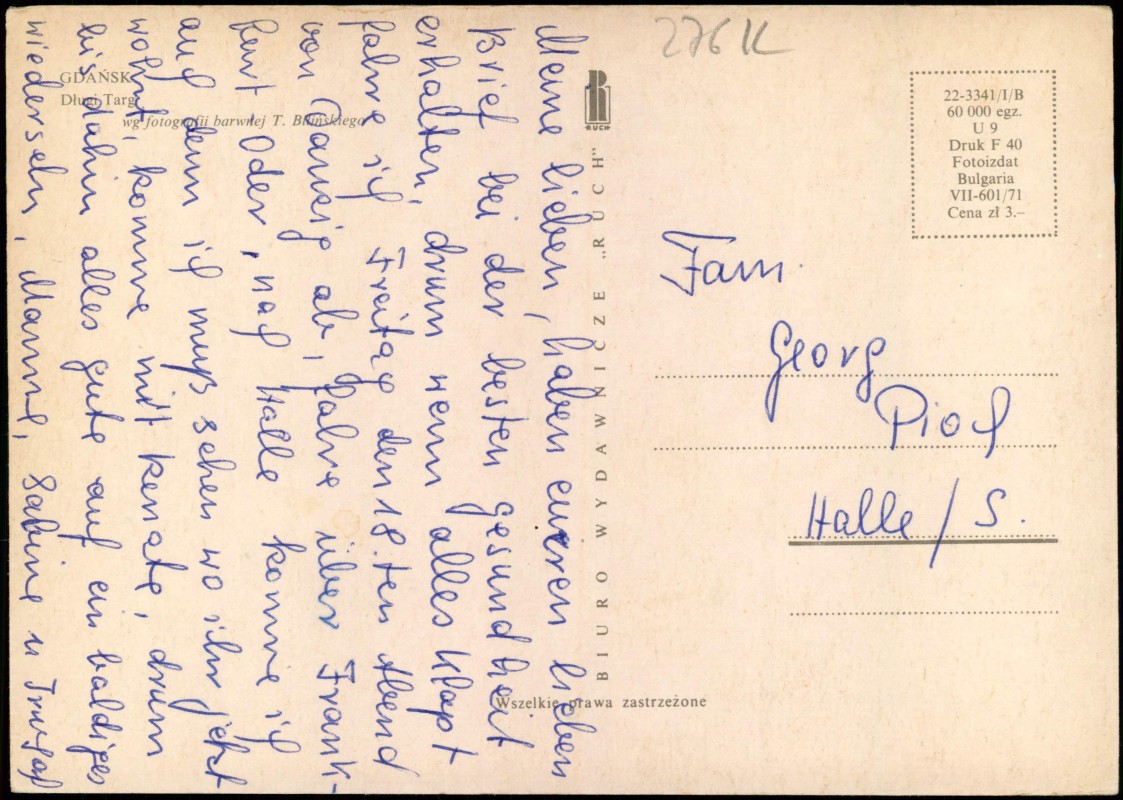 GDAŃSK
Długi Targ
wg fotografii barwnej T. Bilińskiego
Meine lieben, haben euren lieben
Brief bei der besten gesundheit
erhalten, drum wenn alles klapt
fahre ich Freitag den 18.ten Abend
von Danzig ab, fahre über Frank-
furt Oder, nach Halle komme ich
auch denn ich muß sehen wo ihr jetzt
wohnt, komme mit Renate, drum
bis dahin alles gute auf ein baldiges
wiedersehn, Manne, Sabine u
RUCH
BIURO WYDAWNICZE „RUCH"
Wszelkie prawa zastrzeżone
276 K
22-3341/I/B
60 000 egz.
U 9
Druk F 40
Fotoizdat
Bulgaria
VII-601/71
Cena zł 3.–
Fam.
Georg
Pioch
Halle/S.